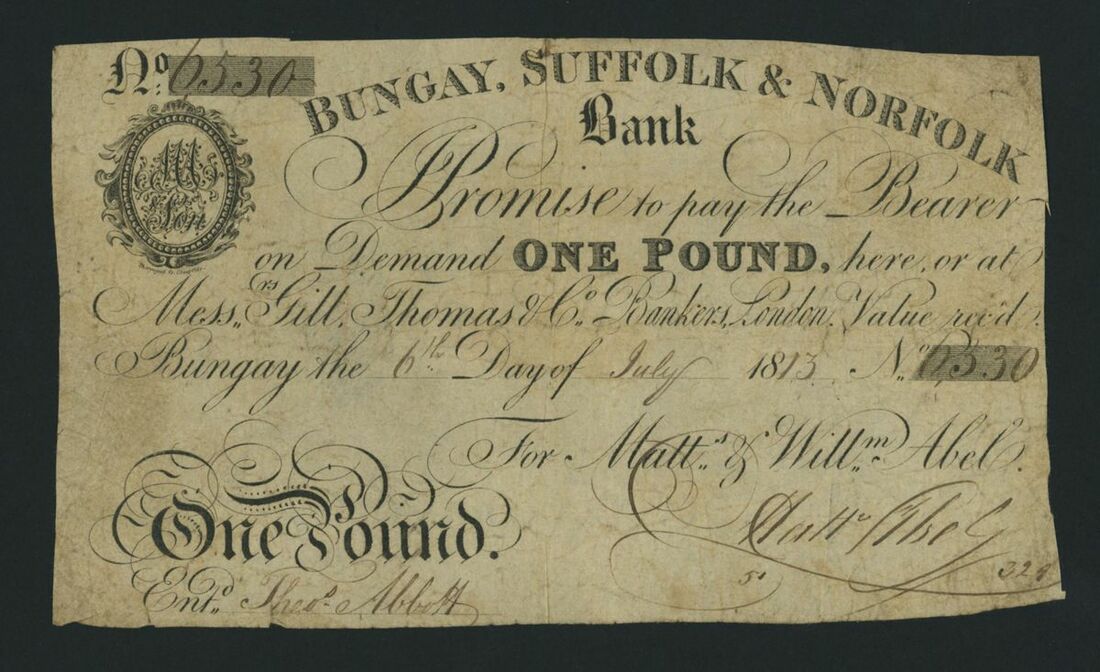 No: 6530
BUNGAY, SUFFOLK & NORFOLK
Bank
I Promise to pay the Bearer
on Demand ONE POUND, here, or at
Messrs. Gill, Thomas & Co. Bankers, London. Value rec'd.
Bungay the 6th Day of July 1813 No. 6530
For Matts. & Willm. Abel.
Mattw Abel
One Pound.
5.
329
Entd. Theos. Abbott